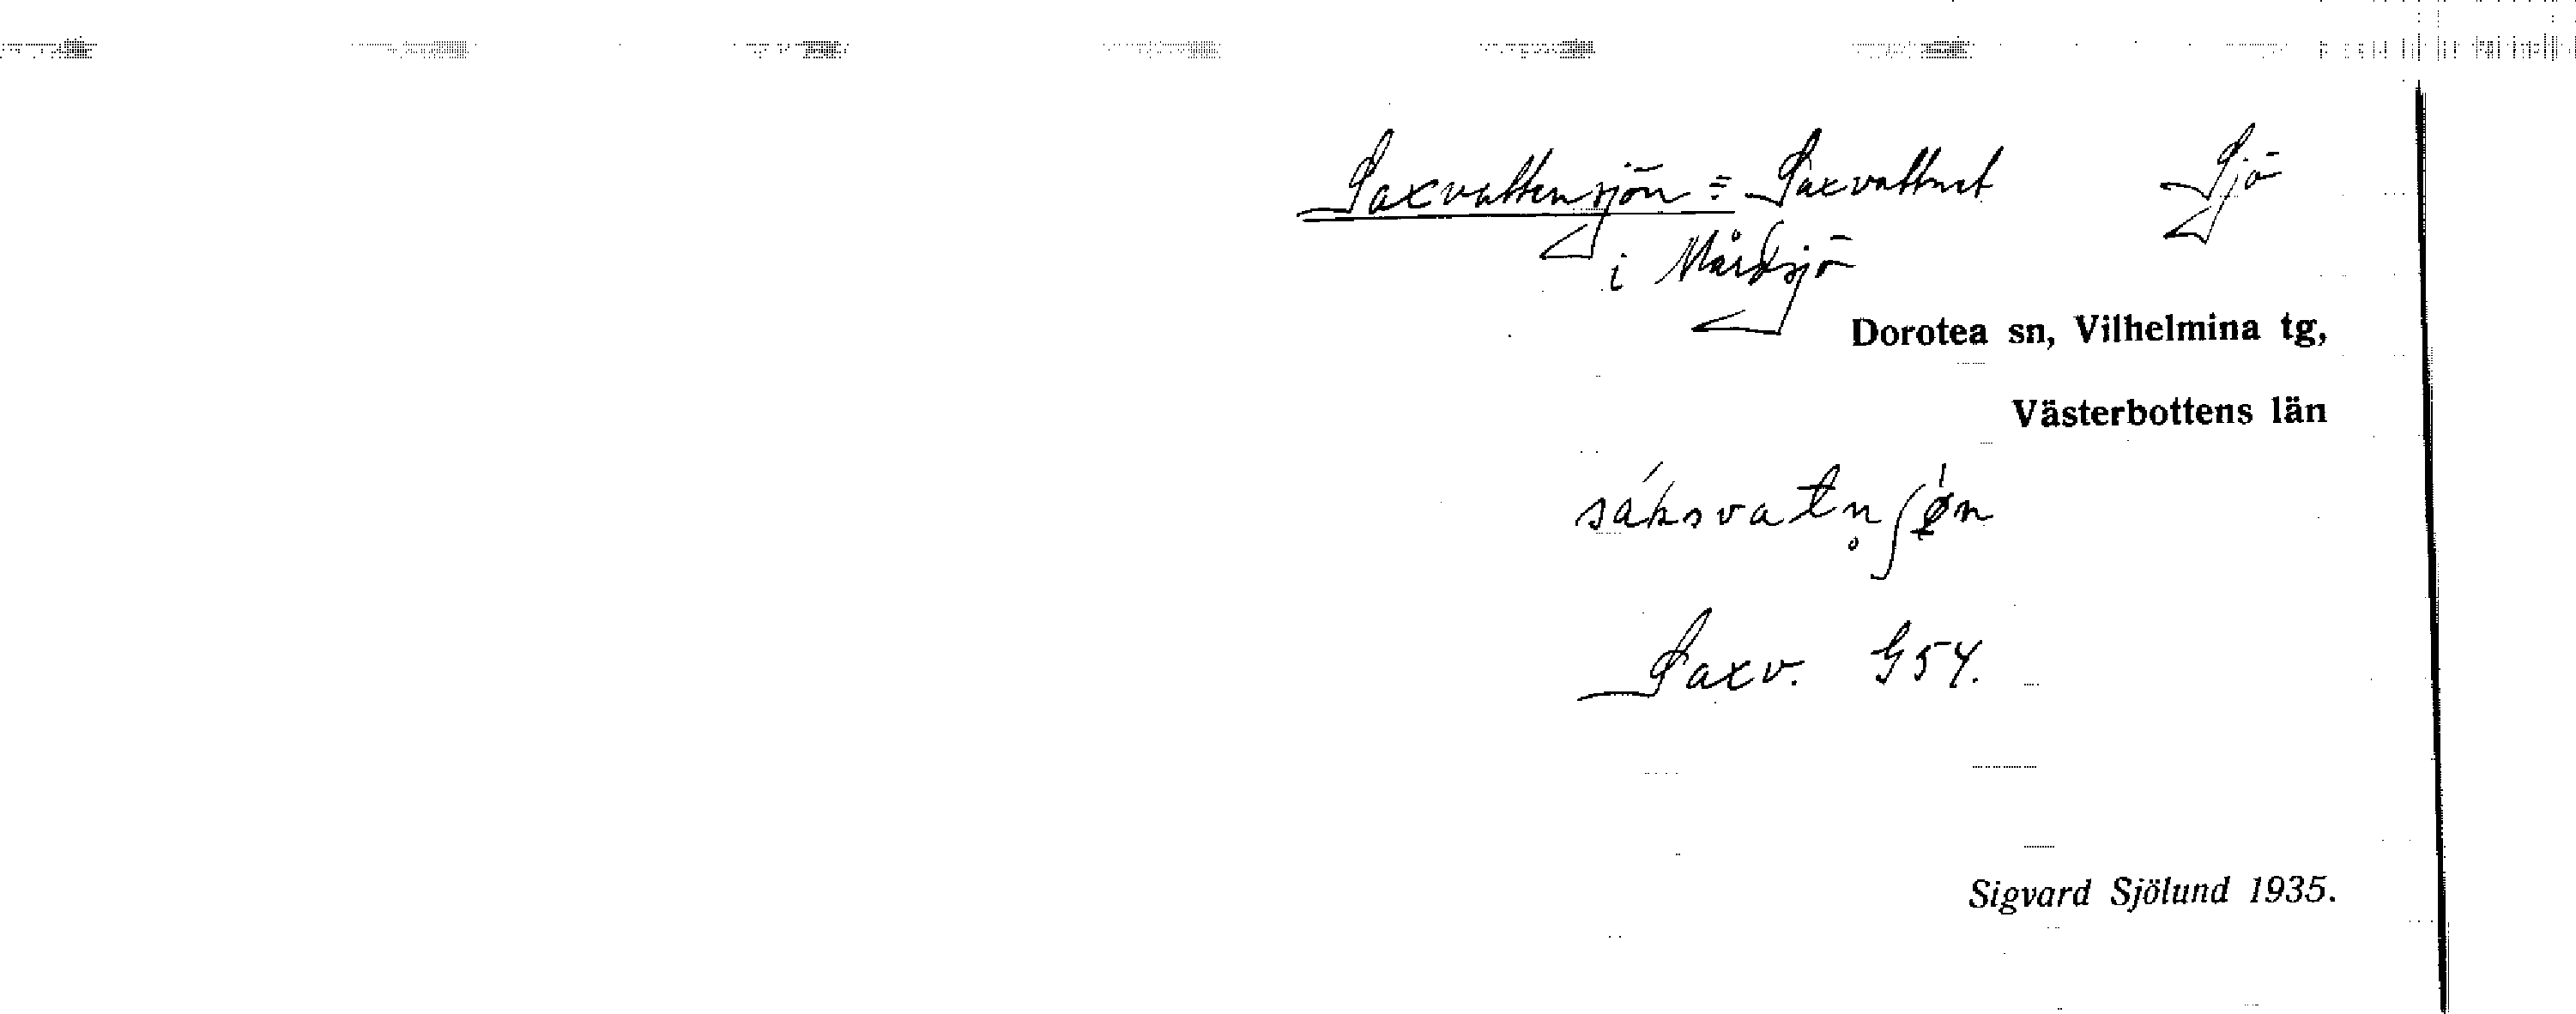 Saxvattensjön = Saxvattnet Sjö
i Mårdsjö
Dorotea sn, Vilhelmina tg,
Västerbottens län
sáksvatn̥ʃø̀n
Saxv. G54.
Sigvard Sjölund 1935.